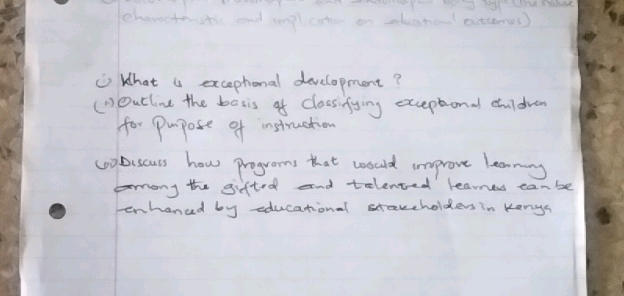 type (the nature
characteristic and implication on educational outcomes)
i) What is exceptional development?
(ii) Outline the basis of classifying exceptional children
for purpose of instruction
(iii) Discuss how programs that would improve learning
among the gifted and talented learners can be
enhanced by educational stakeholders in Kenya